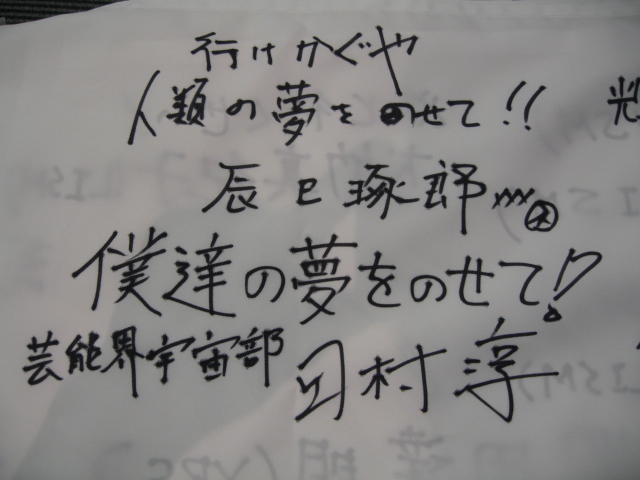 行けかぐや
人類の夢を のせて!!
辰巳琢郎
僕達の夢をのせて!?
芸能界宇宙部 田村淳